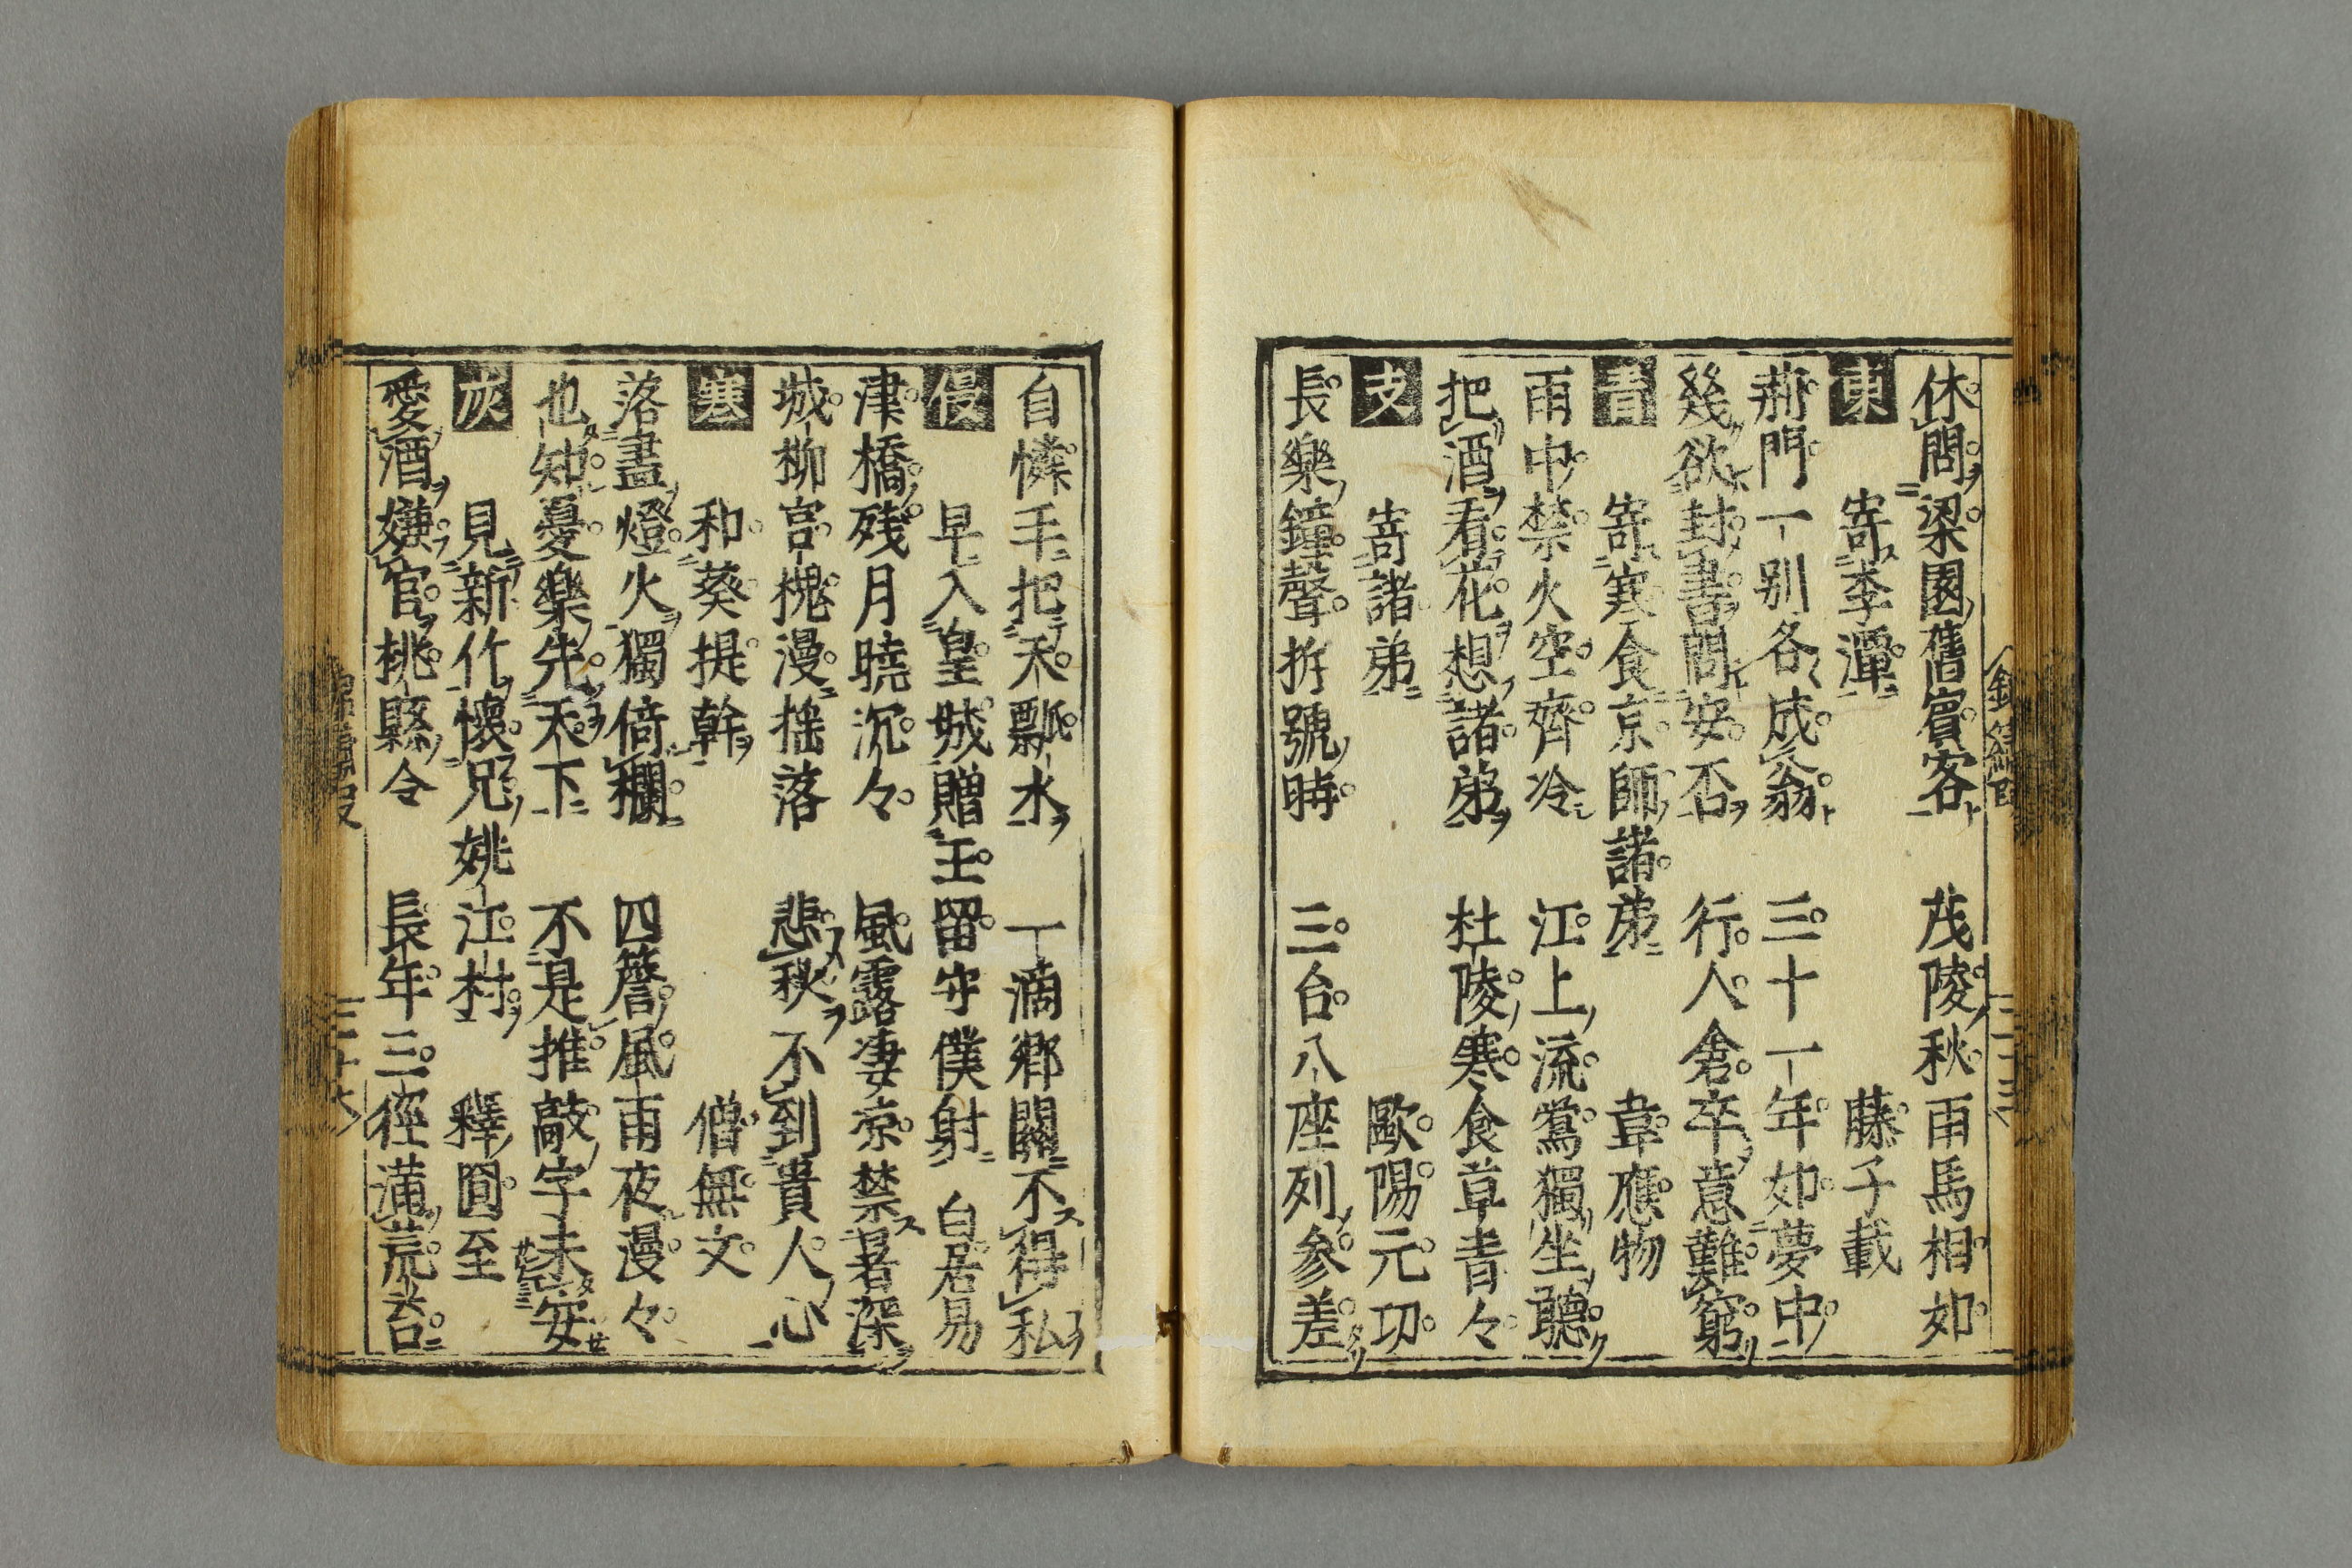 休問梁園舊賓客 茂陵秋雨馬相如
東 寄李潭 藤子載
荊門一別各成翁 三十一年如夢中
幾欲封書問安否 行人倉卒意難窮
青 寄寒食京師諸弟 韋應物
雨中禁火空齊冷 江上流鶯獨坐聽
把酒看花想諸弟 杜陵寒食草青々
支 寄諸弟 歐陽元功
長樂鐘聲拆號時 三台八座列參差
自憐手把天瓢水 一滴鄉關不得私
侵 早入皇城贈王留守僕射 白居易
津橋殘月曉沉々 風露凄凉禁署深
城柳宮槐漫搖落 悲秋不到貴人心
寒 和葵提幹 僧無文
落盡燈火獨倚欄 四簷風雨夜漫々
也知憂樂先天下 不是推敲字未安
灰 見新竹懷兄姚江村 釋圓至
愛酒嫌官桃縣令 長年三徑蒲荒苔